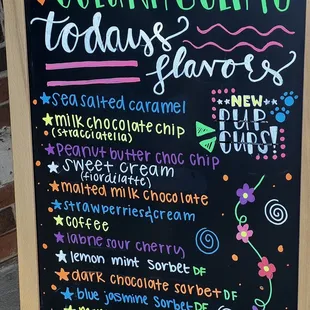 todays
flavors
sea salted caramel
milk chocolate chip
(stracciatella)
peanut butter choc chip
sweet cream
(fiordilatte)
malted milk chocolate
strawberries & cream
coffee
labne sour cherry
lemon mint sorbet DF
dark chocolate sorbet DF
blue jasmine sorbet DF
NEW
PUP
CUPS!